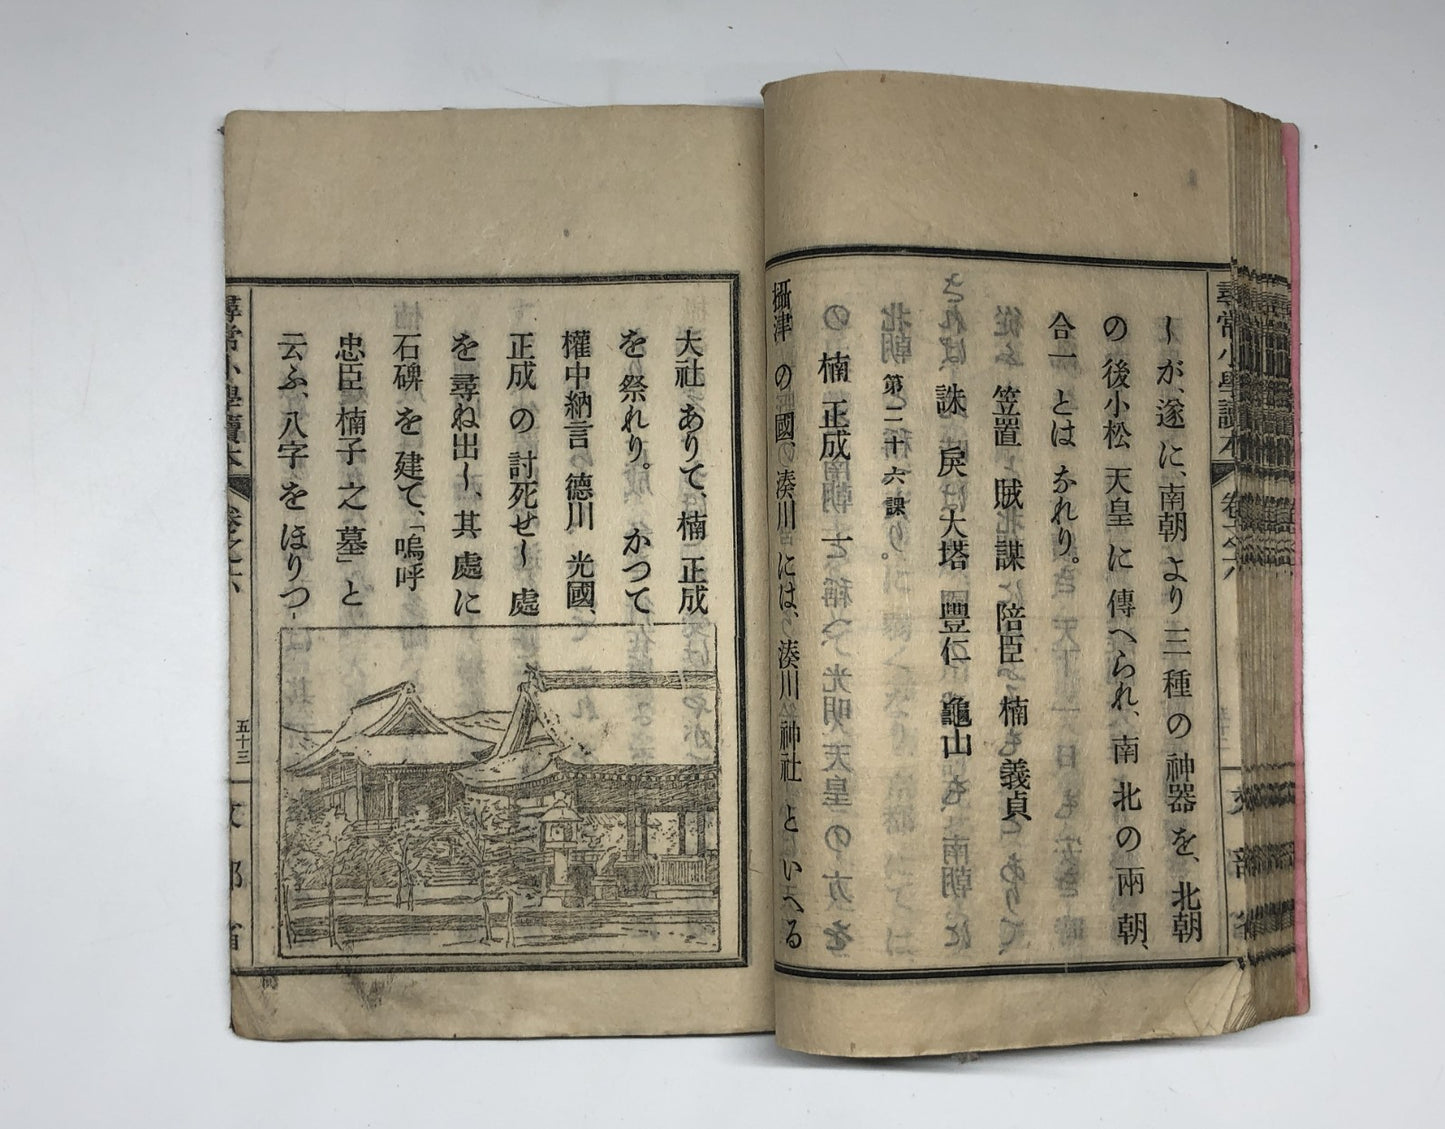 しが、遂に、南朝より三種の神器を、北朝
の後小松天皇に傳へられ、南北の兩朝、
合一とはなれり。
笠置 賊 謀 陪臣 楠義貞
誅 戾 大塔 豐仁 龜山
第二十六課
楠正成
攝津の國湊川には、湊川神社といへる
大社ありて、楠正成
を祭れり。かつて
權中納言德川光國、
正成の討死せし處
を尋ね出し、其處に
石碑を建て、「嗚呼
忠臣楠子之墓」と
云ふ、八字をほりつ
尋常小學讀本
卷之六
五十三
文部省